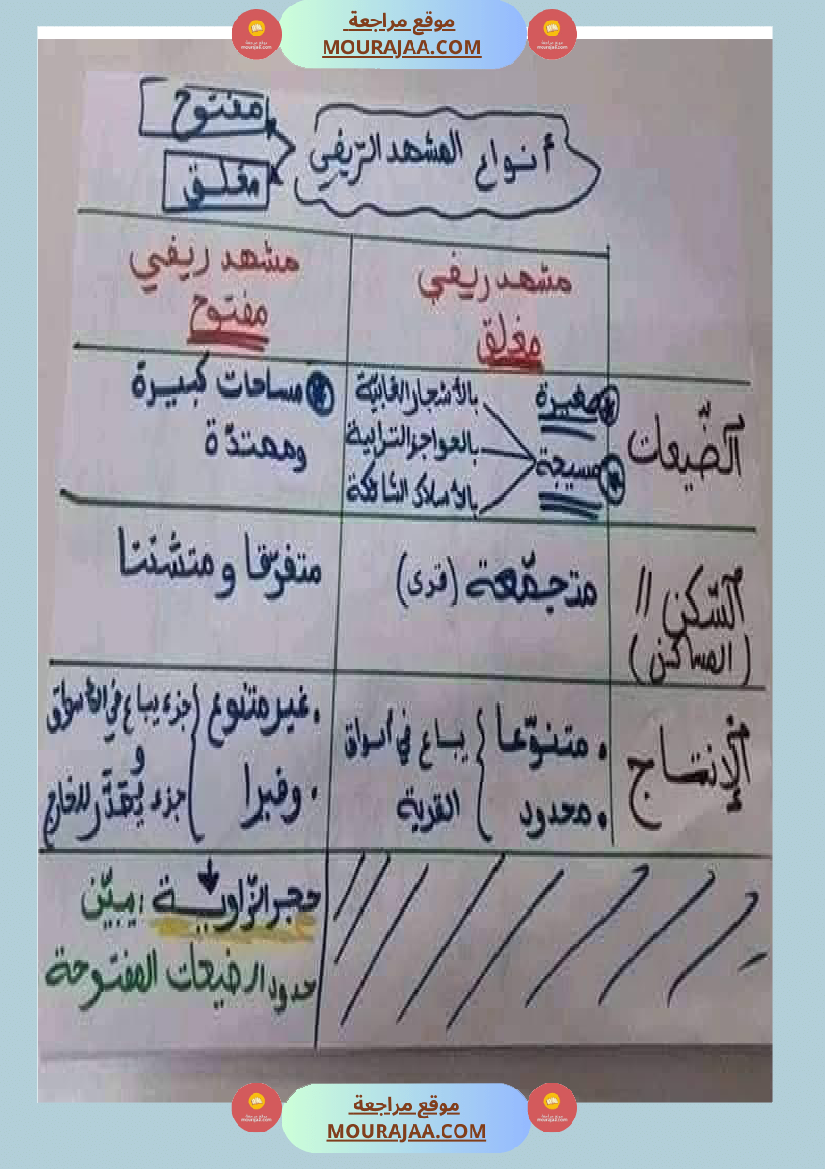 موقع مراجعة
MOURAJAA.COM
أنواع المشهد الرّيفي
مفتوح
مغلق
مشهد ريفي
مغلق
مشهد ريفي
مفتوح
الضّيعات
صغيرة
مسيجة
بالأشجار الغابيّة
بالحواجز الترابية
بالأسلاك الشائكة
مساحات كبيرة
وممتدّة
السّكن //
(المساكن)
متجمّعة (قرى)
متفرّقا و متشتتا
الإنتاج
• متنوّعا
• محدود
يباع في أسواق
القرية
• غير متنوع
• وفيرا
جزء يباع في الأسواق
و
جزء يصدّر للخارج
حجر الزّاوية : يبيّن
حدود الضيعات المفتوحة
موقع مراجعة
MOURAJAA.COM